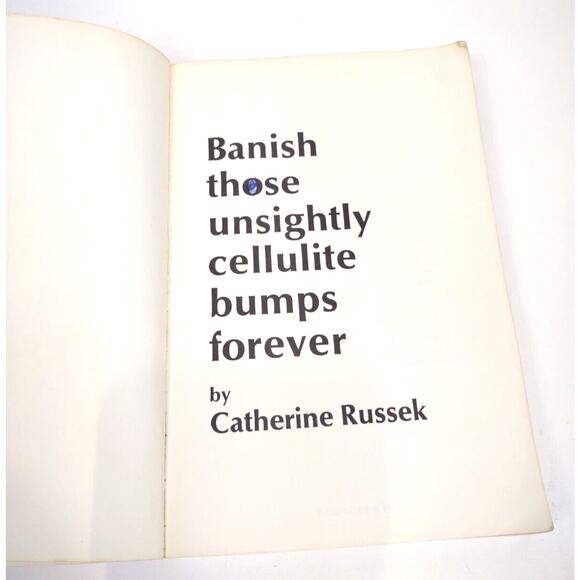 Banish
those
unsightly
cellulite
bumps
forever
by
Catherine Russek